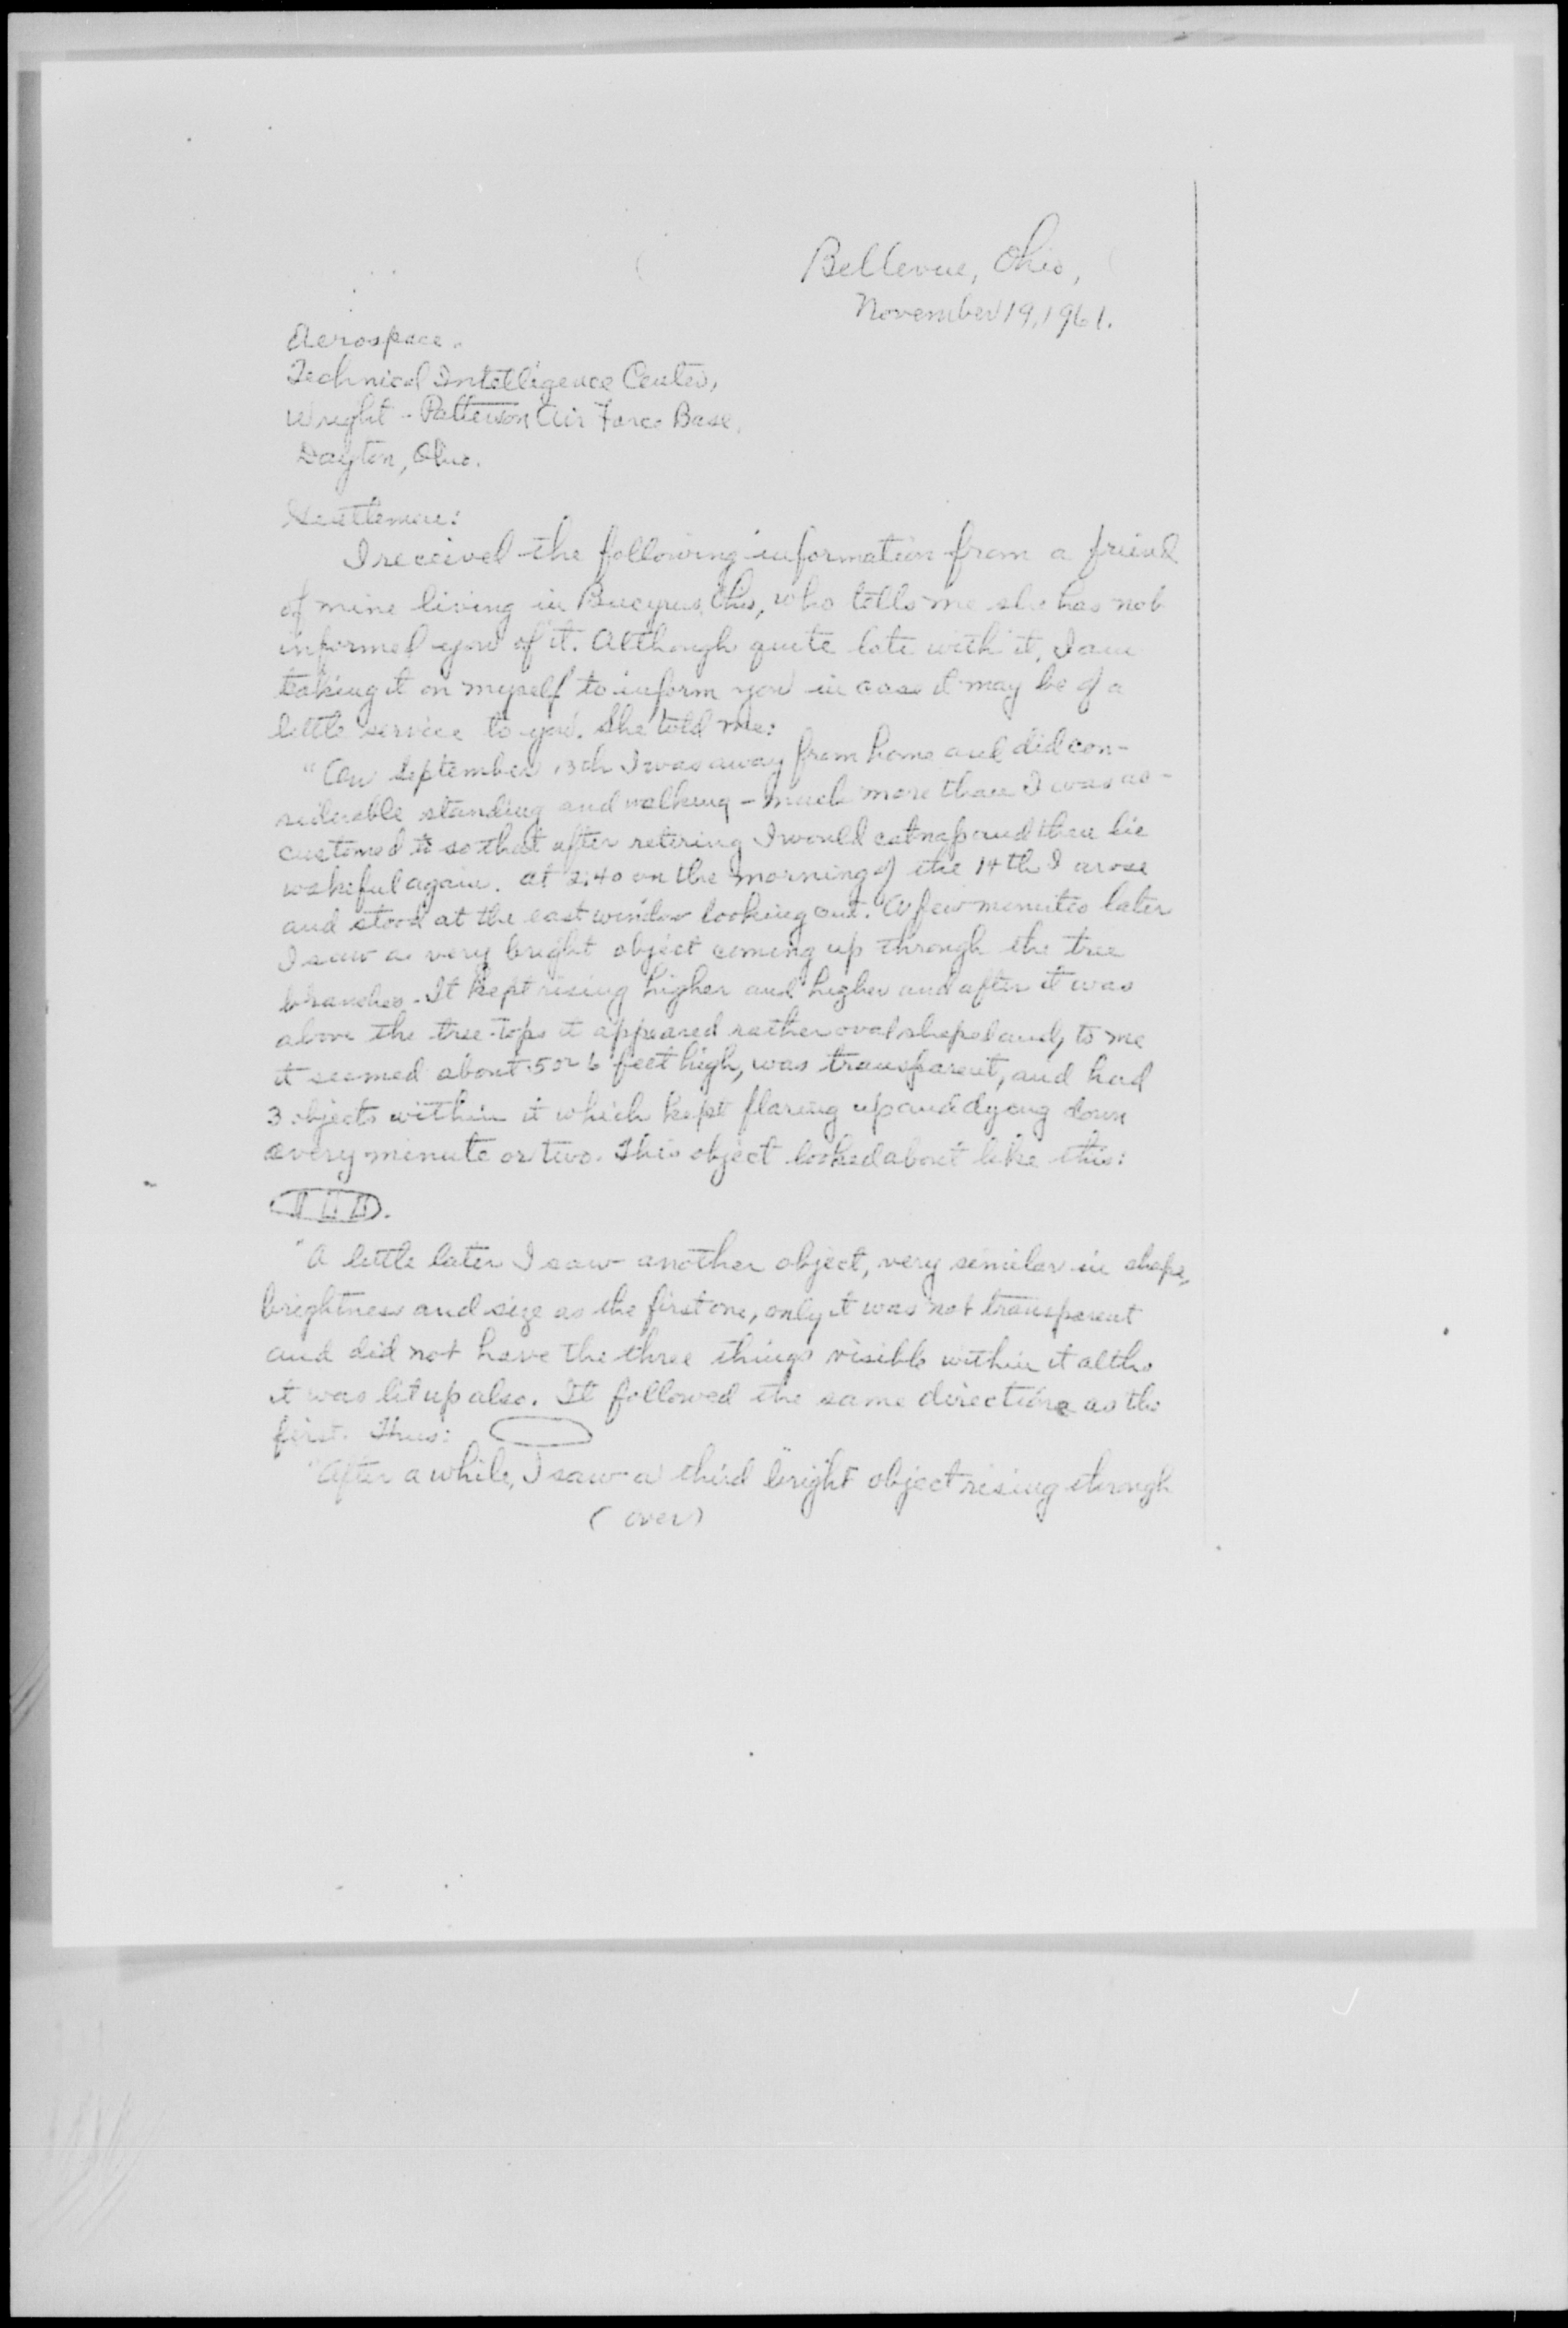 Bellevue, Ohio,
November 19, 1961.
Aerospace
Technical Intelligence Center,
Wright-Patterson Air Force Base,
Dayton, Ohio.
Gentlemen:
I received the following information from a friend
of mine living in Bucyrus, Ohio, who tells me she has not
informed you of it. Although quite late with it, I am
taking it on myself to inform you in case it may be of a
little service to you. She told me:
"On September 13th I was away from home and did con-
siderable standing and walking - much more than I was ac-
customed to so that after retiring I would catnap and then lie
wakeful again. At 2:40 on the morning of the 14th I arose
and stood at the east window looking out. A few minutes later
I saw a very bright object coming up through the tree
branches. It kept rising higher and higher and after it was
above the tree-tops it appeared rather oval shaped and, to me
it seemed about 5 or 6 feet high, was transparent, and had
3 objects within it which kept flaring up and dying down
every minute or two. This object looked about like this:
"A little later I saw another object, very similar in shape,
brightness and size as the first one, only it was not transparent
and did not have the three things visible within it altho
it was lit up also. It followed the same direction as the
first. Thus:
"After a while, I saw a third bright object rising through
(over)